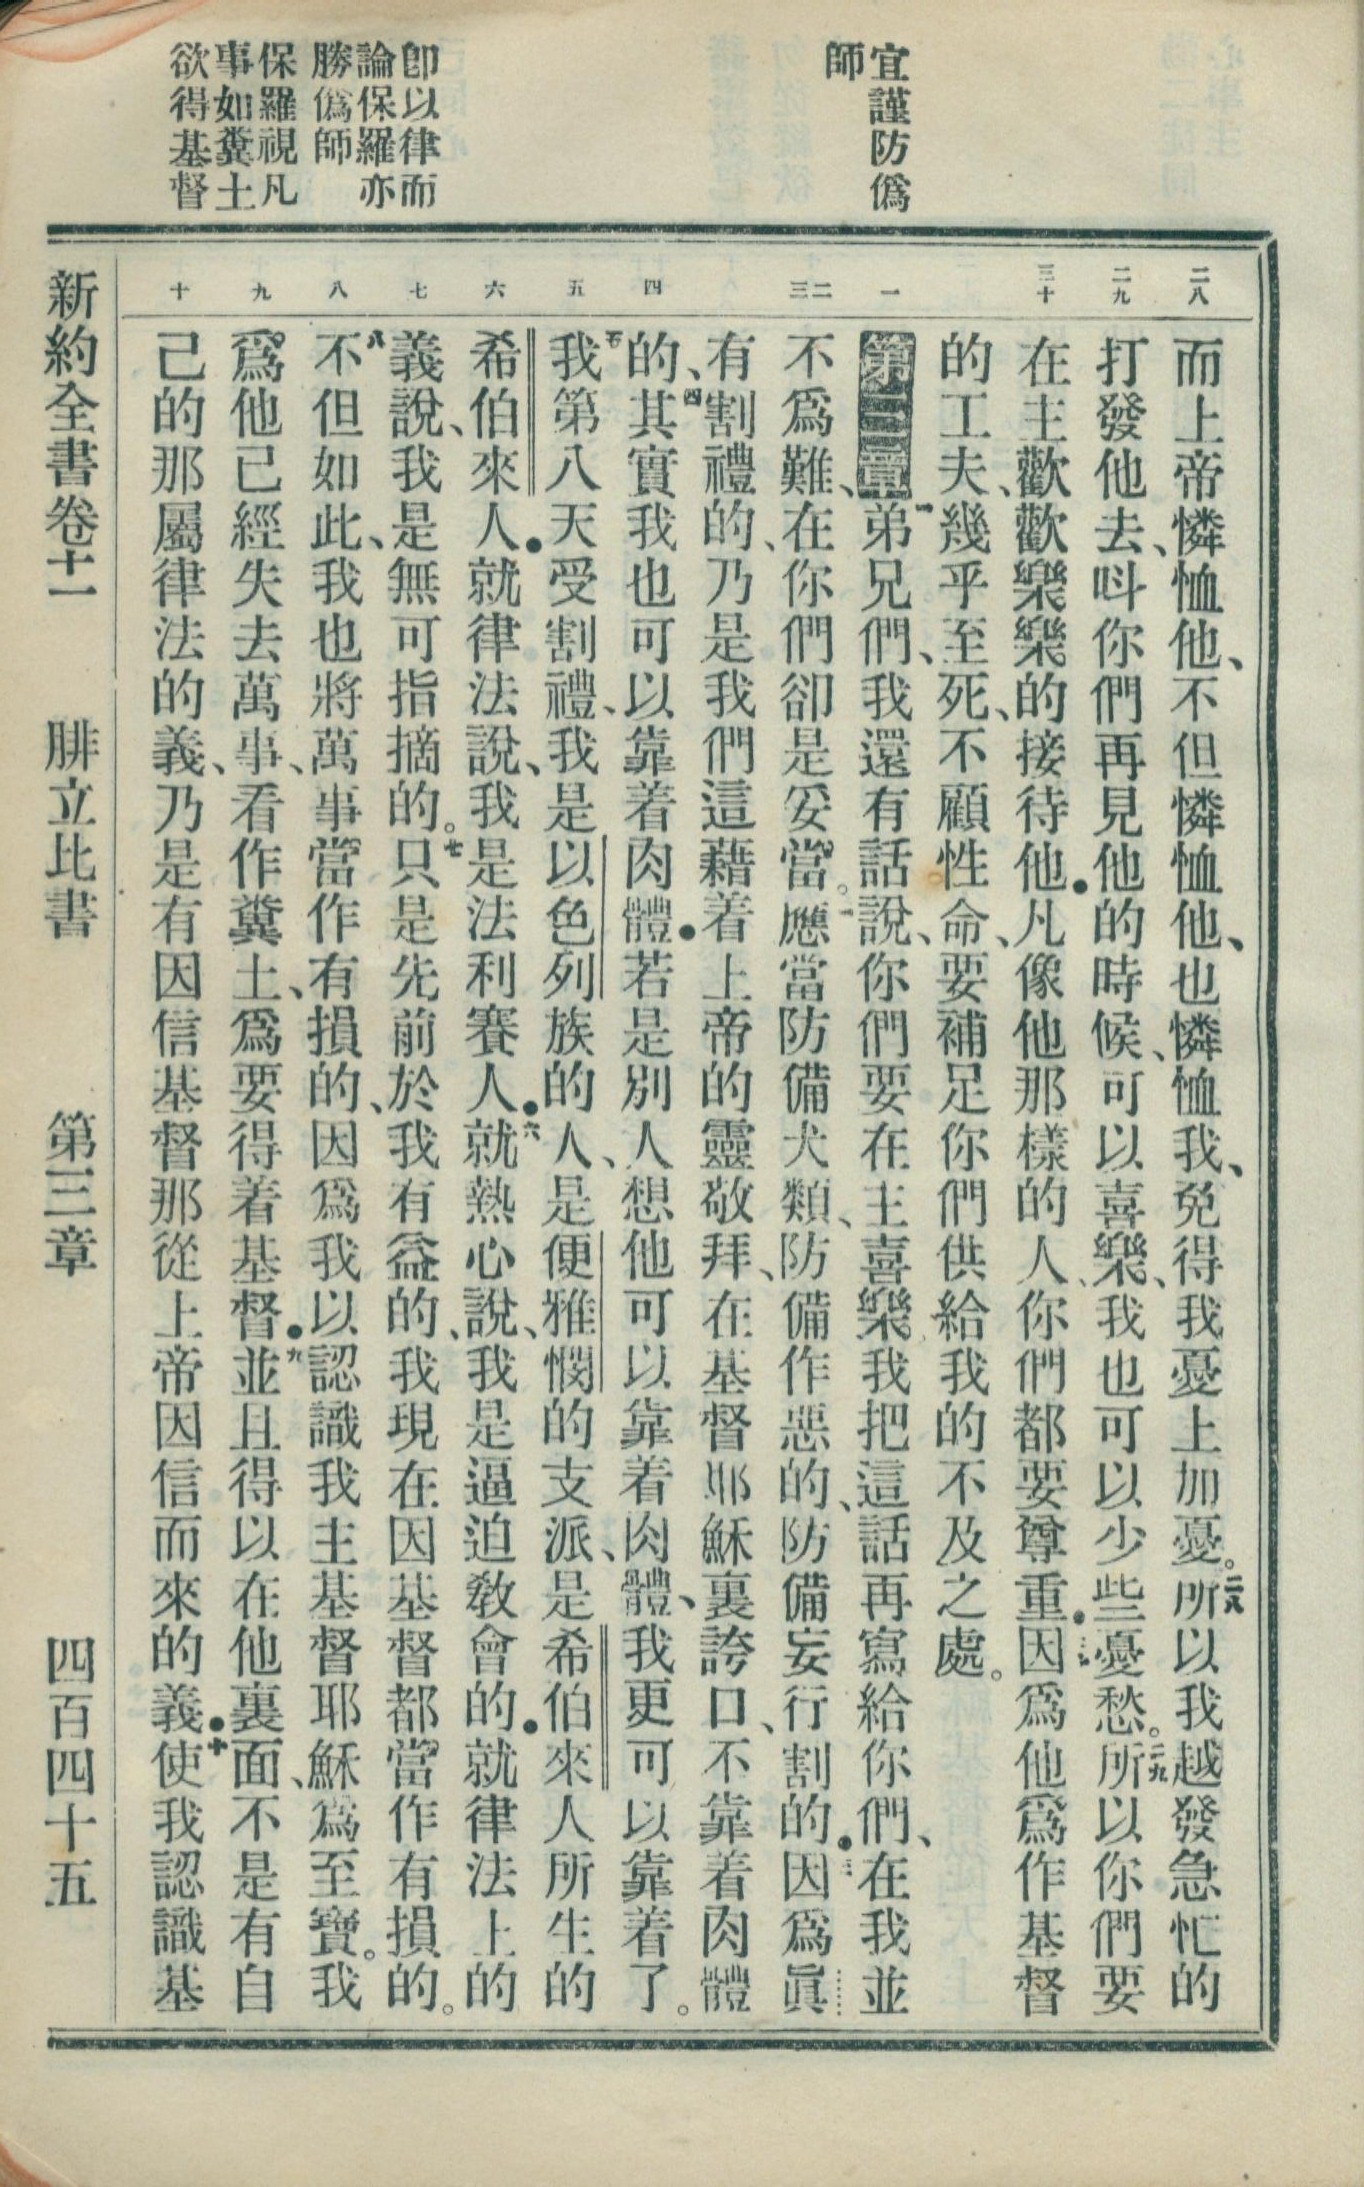 宜謹防僞
師
卽以律而
論保羅亦
勝僞師
保羅視凡
事如糞土
欲得基督
二八
二九
三十
一
二
三
四
五
六
七
八
九
十
而上帝憐恤他、不但憐恤他、也憐恤我、免得我憂上加憂。二八所以我越發急忙的
打發他去、呌你們再見他的時候、可以喜樂、我也可以少些憂愁。二九所以你們要
在主歡歡樂樂的接待他●凡像他那樣的人、你們都要尊重●三十因爲他爲作基督
的工夫、幾乎至死、不顧性命、要補足你們供給我的不及之處。
第三章一弟兄們、我還有話說、你們要在主喜樂我把這話再寫給你們、在我並
不爲難、在你們卻是妥當。二應當防備犬類、防備作惡的、防備妄行割的●三因爲眞
有割禮的、乃是我們這藉着上帝的靈敬拜、在基督耶穌裏誇口、不靠着肉體
的、四其實我也可以靠着肉體●若是別人想他可以靠着肉體、我更可以靠着了。
五我第八天受割禮、我是以色列族的人、是便雅憫的支派、是希伯來人所生的
希伯來人●就律法說、我是法利賽人●六就熱心說、我是逼迫敎會的●就律法上的
義說、我是無可指摘的。七只是先前於我有益的、我現在因基督都當作有損的。
八不但如此、我也將萬事當作有損的、因爲我以認識我主基督耶穌爲至寶。我
爲他已經失去萬事、看作糞土、爲要得着基督●九並且得以在他裏面、不是有自
己的那屬律法的義、乃是有因信基督那從上帝因信而來的義●十使我認識基
新約全書卷十一　腓立比書　第三章　四百四十五